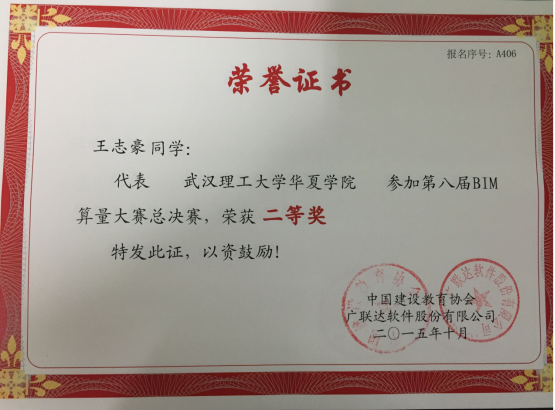 报名序号：A406
荣誉证书
王志豪同学：
代表 武汉理工大学华夏学院 参加第八届BIM
算量大赛总决赛，荣获 二等奖
特发此证，以资鼓励！
中国建设教育协会
广联达软件股份有限公司
二〇一五年十月